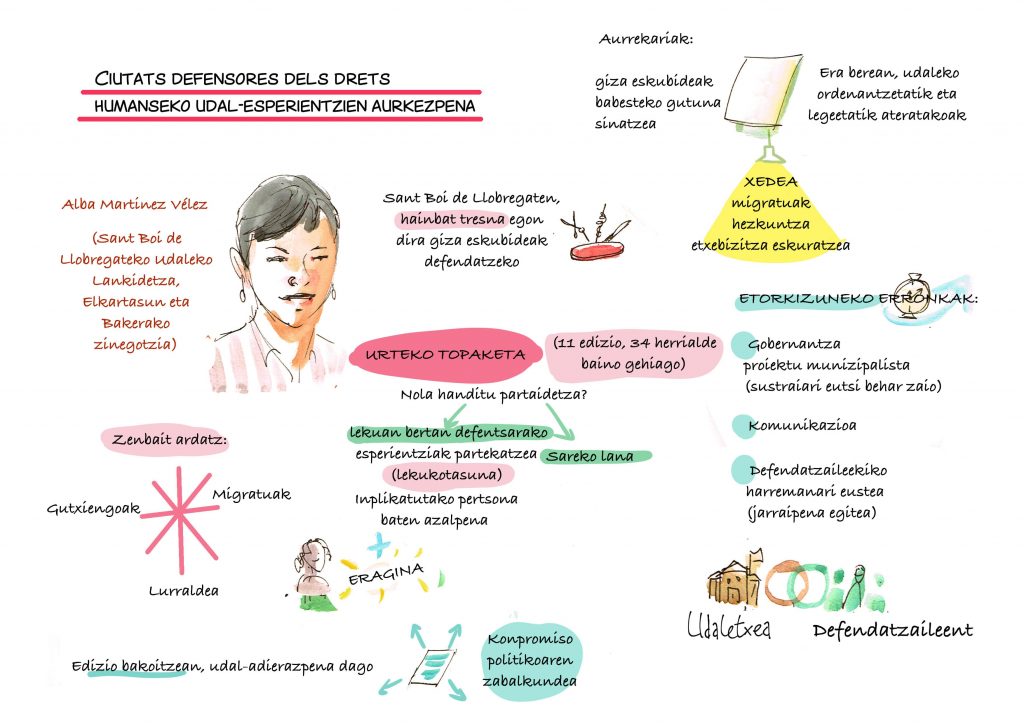 CIUTATS DEFENSORES DELS DRETS
HUMANSEKO UDAL-ESPERIENTZIEN AURKEZPENA
Aurrekariak:
giza eskubideak
babesteko gutuna
sinatzea
Era berean, udaleko
ordenantzetatik eta
legeetatik ateratakoak
XEDEA
migratuak
hezkuntza
etxebizitza eskuratzea
Alba Martínez Vélez
(Sant Boi de
Llobregateko Udaleko
Lankidetza,
Elkartasun eta
Bakerako
zinegotzia)
Sant Boi de Llobregaten,
hainbat tresna egon
dira giza eskubideak
defendatzeko
URTEKO TOPAKETA
(11 edizio, 34 herrialde
baino gehiago)
Nola handitu partaidetza?
lekuan bertan defentsarako
esperientziak partekatzea
(lekukotasuna)
Inplikatutako pertsona
baten azalpena
Sareko lana
ERAGINA
ETORKIZUNEKO ERRONKAK:
Gobernantza
proiektu munizipalista
(sustraiari eutsi behar zaio)
Komunikazioa
Defendatzaileekiko
harremanari eustea
(jarraipena egitea)
Udaletxea
Defendatzaileent
Zenbait ardatz:
Gutxiengoak
Migratuak
Lurraldea
Edizio bakoitzean, udal-adierazpena dago
Konpromiso
politikoaren
zabalkundea